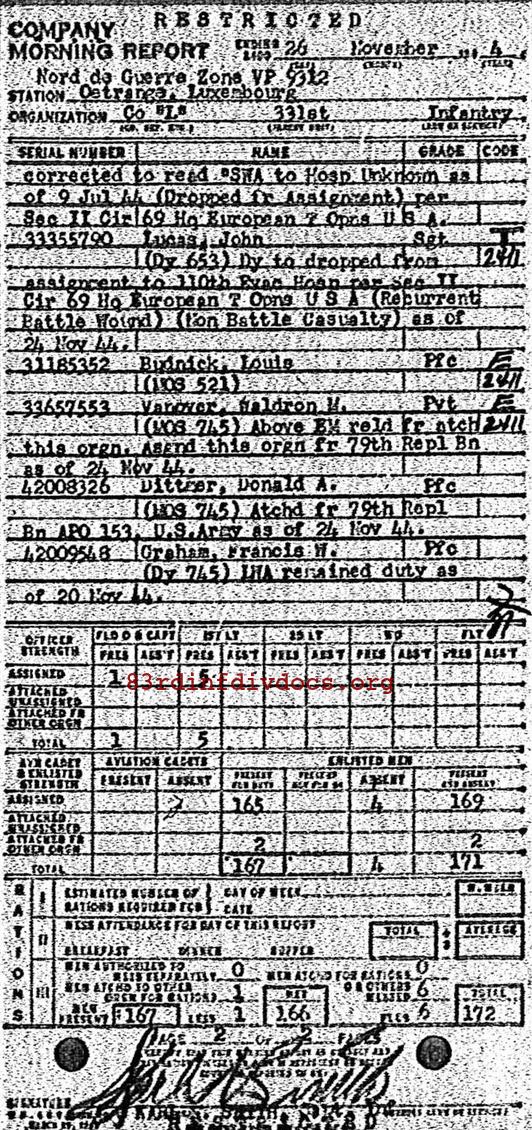 RESTRICTED
COMPANY
MORNING REPORT ENDING 2400 26 November 194 4
Nord de Guerre Zone VP 9312
STATION Oetrange, Luxembourg
ORGANIZATION Co "L" 331st Infantry
SERIAL NUMBER NAME GRADE CODE
corrected to read "SWA to Hosp Unknown as
of 9 Jul 44 (Dropped fr Assignment) per
Sec II Cir 69 Hq European T Opns U S A.
33355790 Lucas, John Sgt T
(Dy 653) Dy to dropped from 2411
assignment to 110th Evac Hosp per Sec II
Cir 69 Hq European T Opns U S A (Recurrent
Battle Wound) (Non Battle Casualty) as of
24 Nov 44.
31185352 Budnick, Louis Pfc E
(MOS 521) 2411
33657553 Vanover, Waldron M. Pvt E
(MOS 745) Above EM reld fr atch 2411
this orgn. Asgnd this orgn fr 79th Repl Bn
as of 24 Nov 44.
42008326 Dittmer, Donald A. Pfc
(MOS 745) Atchd fr 79th Repl
Bn APO 153, U.S.Army as of 24 Nov 44.
42009548 Graham, Francis W. Pfc
(Dy 745) LWA remained duty as
of 20 Nov 44.
OFFICER STRENGTH FLD O & CAPT 1ST LT 2D LT WO FLT
PRES ABS'T PRES ABS'T PRES ABS'T PRES ABS'T PRES ABS'T
ASSIGNED 1 5
83rdinfdivdocs.org
ATTACHED UNASSIGNED
ATTACHED FR OTHER ORGN
TOTAL 1 5
AVN CADET & ENLISTED STRENGTH AVIATION CADETS ENLISTED MEN
PRESENT ABSENT PRESENT FOR DUTY PRESENT NOT FOR DY ABSENT PRESENT AND ABSENT
ASSIGNED 165 4 169
ATTACHED UNASSIGNED
ATTACHED FR OTHER ORGN 2 2
TOTAL 167 4 171
RATIONS
I ESTIMATED NUMBER OF RATIONS REQUIRED FOR DAY OF WEEK DATE
II MESS ATTENDANCE FOR DAY OF THIS REPORT TOTAL ÷3 AVERAGE
BREAKFAST DINNER SUPPER
III MEN AUTHORIZED TO MESS SEPARATELY 0 MEN ATCHD FOR RATIONS 0
MEN ATCHD TO OTHER ORGN FOR RATIONS 1 NET OTHERS MESSED 6 TOTAL
MEN PRESENT 167 LESS 1 166 PLUS 6 172
PAGE 2 OF 2 PAGES
SIGNATURE
RESTRICTED